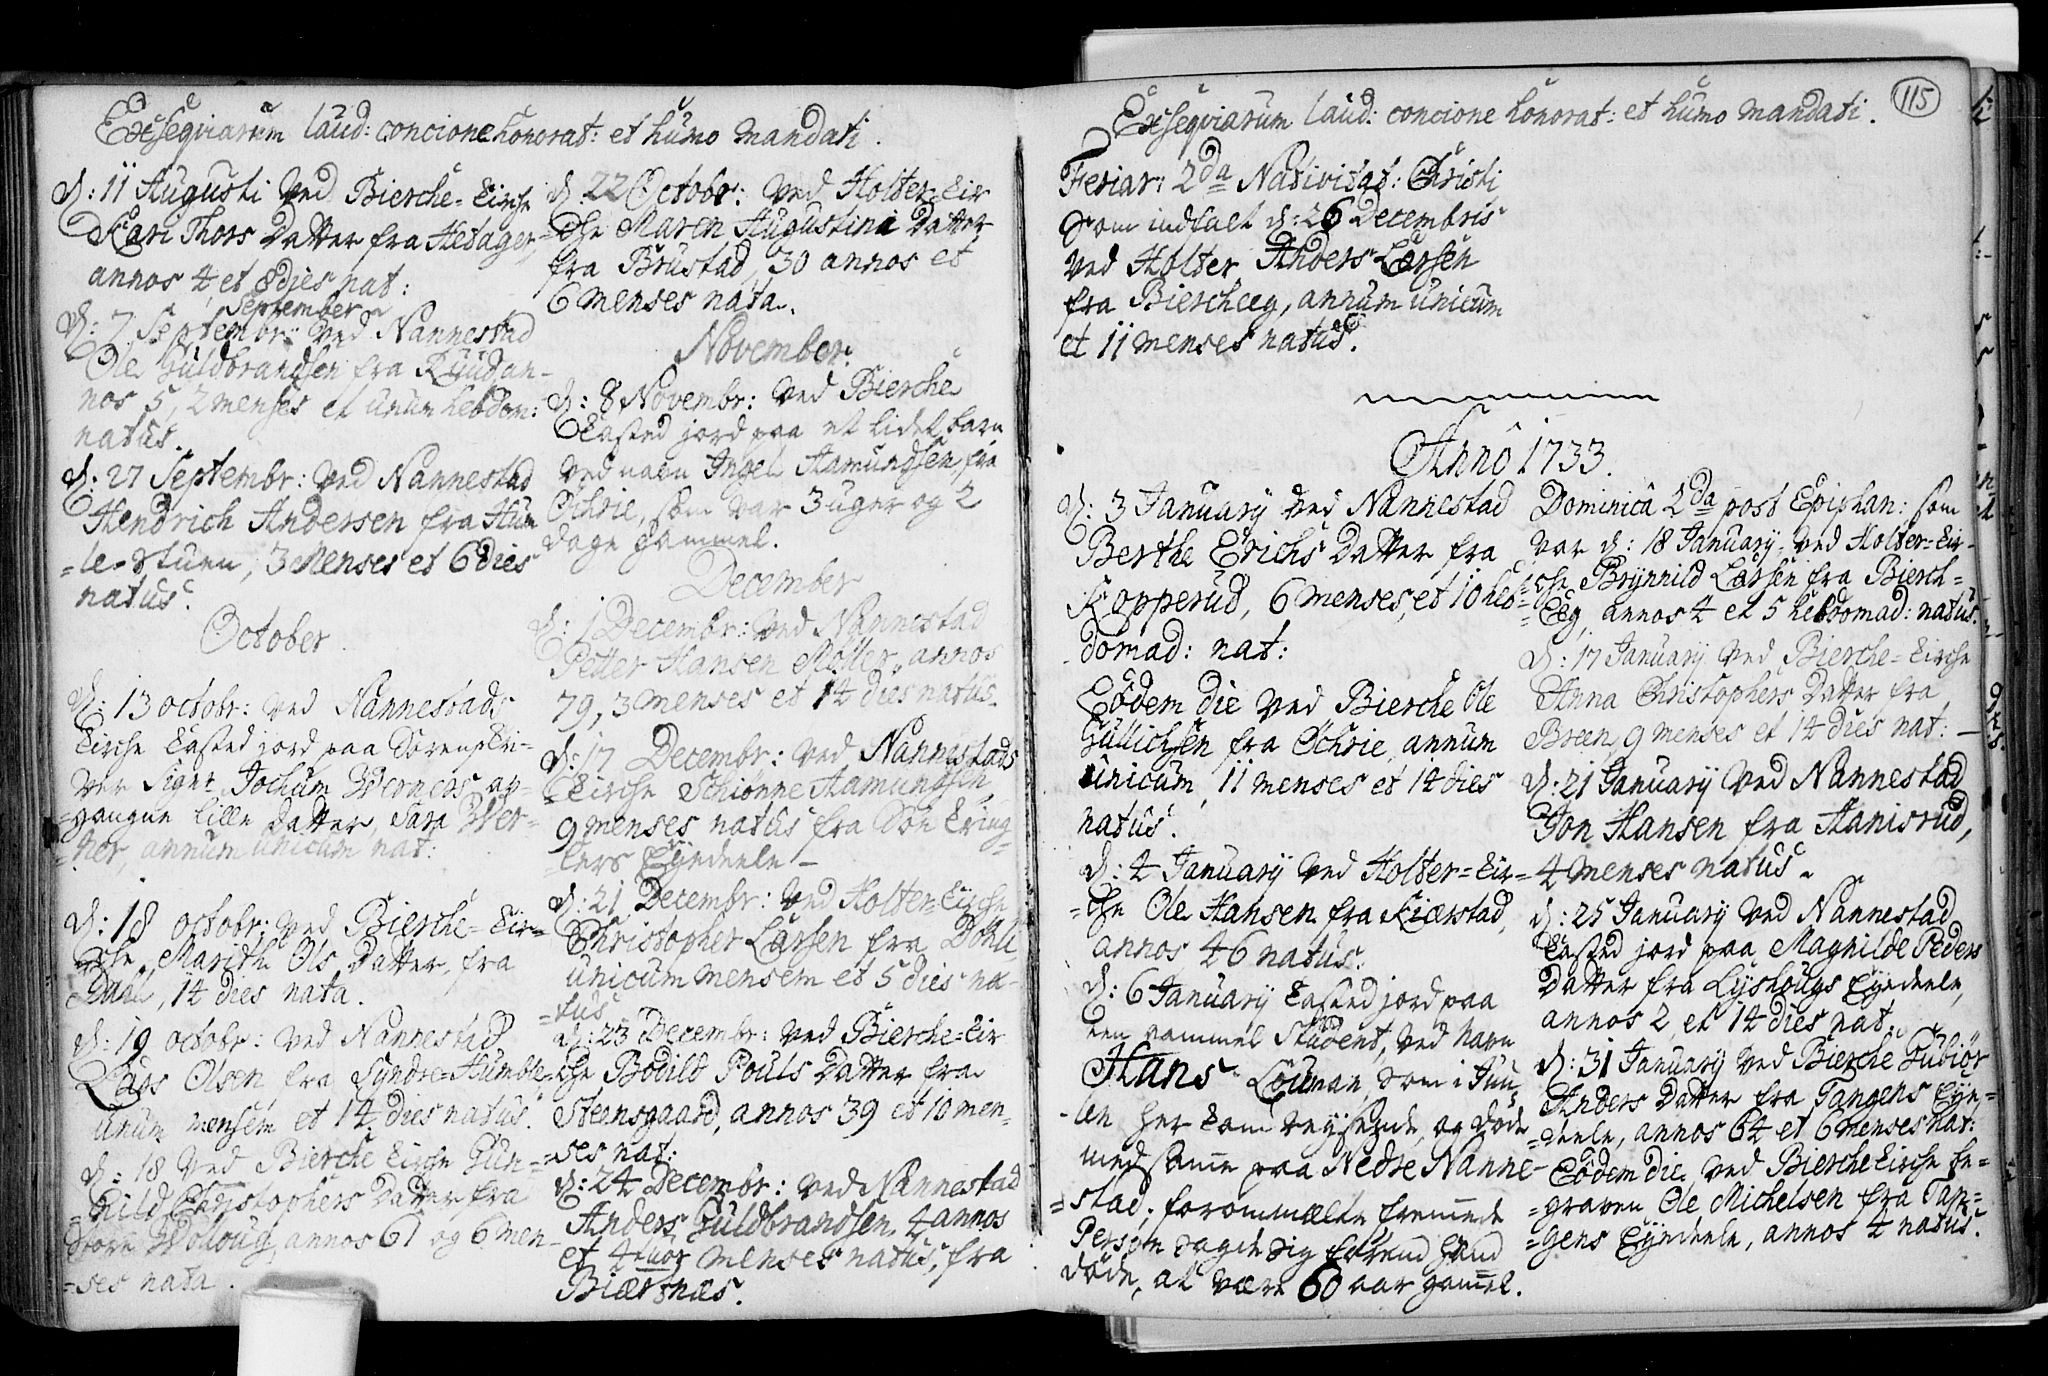 Exseqviarum laud: concione honorat: et humo mandati.
d: 11 Augusti ved Bierche-Kirche
Kari Thors Datter fra Hesager,
annos 4 et 8 dies nat:
September
d: 7 Septembr: ved Nannestad
Ole Guldbrandsen fra Ruud an-
nos 5, 2 menses et unum hebdom:
natus.
d: 27 Septembr: ved Nannestad
Hendrich Andersen fra Hum
=le-Stuen, 3 Menses et 6 dies
natus.
October.
d: 13 octobr: ved Nannestads
Kirche Kasted jord paa Sorenskri-
ver Signr Jochum Werners ap-
=gangne lille Datter, Sara Wer-
=ner, annum unicum nat:
d: 18 octobr: ved Bierche-Kir=
=che Marithe Ols Datter, fra
Dahl, 14 dies nata.
d: 19 octobr: ved Nannestad
Lars Olsen fra Syndre-Humble
unum mensem et 14 dies natus.
d: 18 ved Bierche Kirche Gun-
=hild Christophers Datter fra
Store Wolloug, annos 61 og 6 men
=ses nata.
d: 22 Octobr: ved Holter-Kir
=che Maren Augustini Datter
fra Brustad, 30 annos et
6 menses nata.
November.
d: 8 Novembr: ved Bierche
Kasted jord paa et lidet barn
ved navn Ingel Aamundsen fra
Ochrie, som var 3 uger og 2
dage gammel.
December
d: 1 Decembr: ved Nannestad
Petter Hansen Møller, annos
79, 3 menses et 14 dies natus.
d: 17 Decembr: ved Nannestads
=Kirche Schionne Aamundsen,
9 menses natus fra Søe Kring
=lers Eyedeele -
d: 21 Decembr: ved Holter-Kirche
Christopher Larsen fra Døhli
unicum mensem et 5 dies na-
=tus
d: 23 Decembr: ved Bierche-Kir
=che Bodild Pouls Datter fra
Steensgaard, annos 39 et 10 men-
=ses nat:
d: 24 Decembr: ved Nannestad
Anders Guldbrandsen. 4 annos
et 4tuor menses natus, fra
Biærtnæs.
115
Exseqviarum laud: concione honorat: et humo mandati.
Feriar: 2da Nativitat: Christi
som indfalt d: 26 Decembris
ved Holter Anders Larsen
fra Bierchæg, annum unicum
et 11 menses natus.
Anno 1733.
d: 3 January ved Nannestad
Berthe Erichs Datter fra
Kopperud, 6 menses, et 10 heb=
domad: nat:
Eodem die ved Bierche Ole
Gullichsen fra Ochrie, annum
unicum, 11 menses et 14 dies
natus.
d: 4 January ved Holter=Kir=
=che Ole Hansen fra Kiærstad,
annos 46 natus.
d: 6 January Kasted jord paa
een gammel Student, ved Navn
Hans Louman, som i Juu
=len her kom reysende, og døde
med samme paa Nedre Nanne-
=stad, forommælte fremmede
Person sagde sig førend hand
døde, at være 60 aar gamel.
Dominica 2da post Epiphan: som
var d: 18 January, ved Holter=Kir-
=che Brynnild Larsen fra Bierch=
=Eeg, annos 4 et 5 hebdomad: natus.
d: 17 January ved Bierche-Kirche
Anna Christophers Datter fra
Breen, 9 menses et 14 dies nat: -
d: 21 January ved Nannestad
Jon Hansen fra Hanisrud,
4 menses natus.
d: 25 January ved Nannestad
Kasted jord paa Magnilde Peders
Datter fra Lyshougs Eyedeele,
annos 2, et 14 dies nat.
d: 31 January ved Bierche Gubiør
Anders Datter fra Tangens Eye=
=deele, annos 64 et 6 menses nat:
Eodem die ved Bierche Kirche be=
=graven Ole Michelsen fra Tan=
=gens Eyedeele, annos 4 natus.